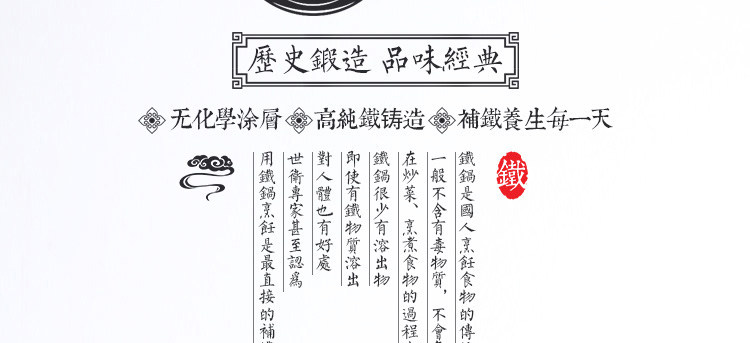 歷史鍛造 品味經典
无化學涂層 高純鐵铸造 補鐵養生每一天
鐵
鐵鍋是國人烹飪食物的傳
一般不含有毒物質，不會
在炒菜、烹煮食物的過程
鐵鍋很少有溶出物
即使有鐵物質溶出
對人體也有好處
世衛專家甚至認爲
用鐵鍋烹飪是最直接的補